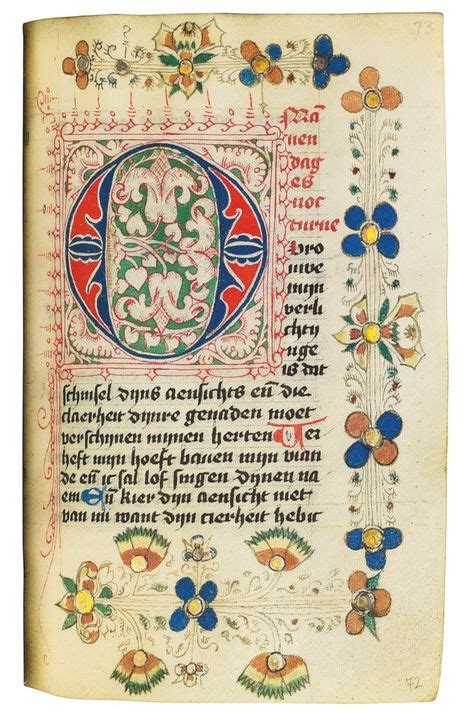 73
Mā
nen
dag
es
noc
turne
O vro
uwe
mijn
verli
chtij
nge
is dat
schinsel dijns aensichts eñ die
claerheit dijnre genaden moet
verschijnen mijnen herten Ver
heft mijn hoeft bauen mijn vian
de eñ ic sal lof singen dijnen na
em Eñ kier dijn aensicht niet
van mi want dijn cierheit heb ic
72